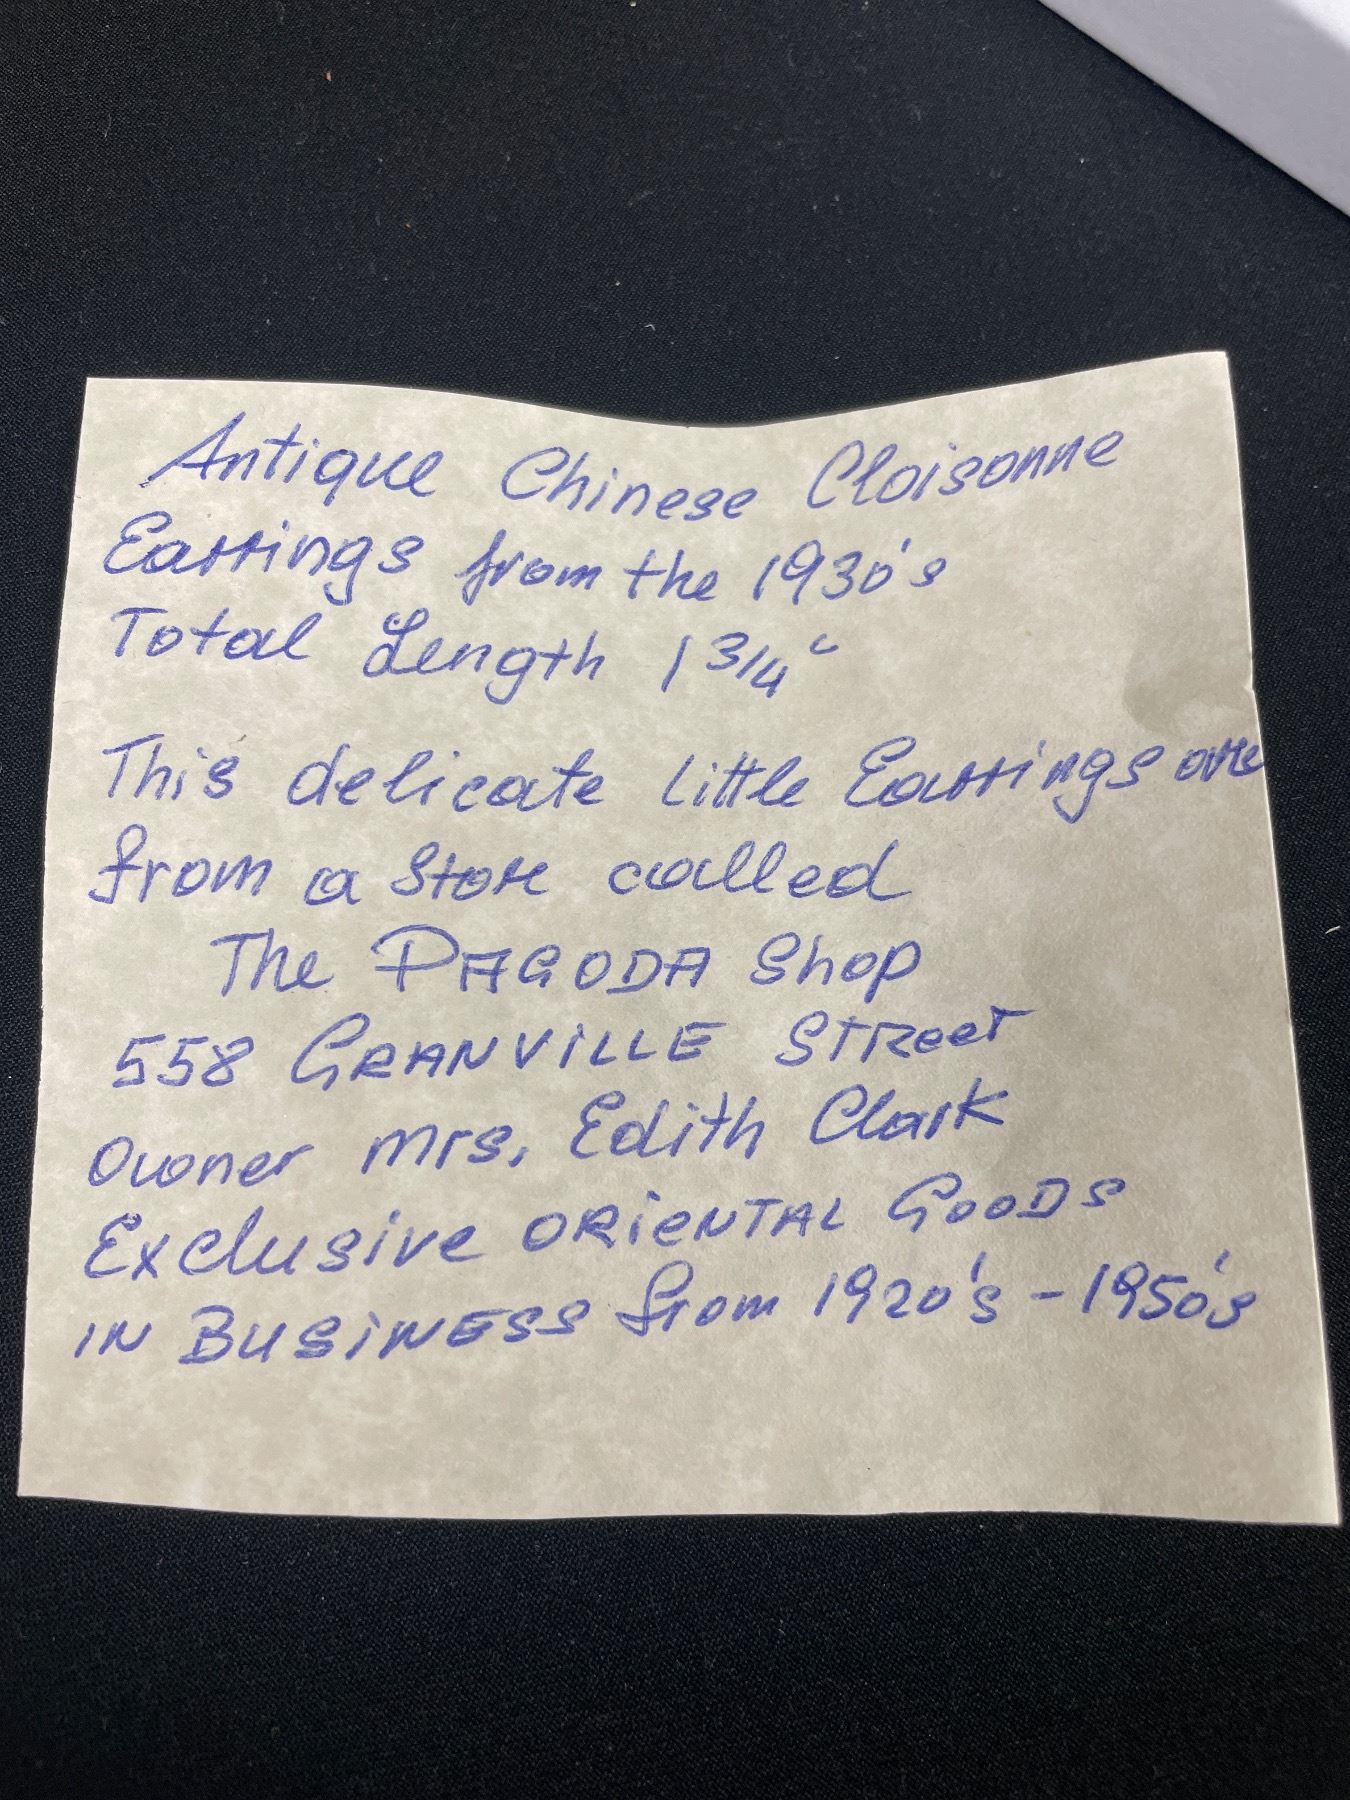 Antique Chinese Cloisonne
Earrings from the 1930's
Total Length 1 3/4"
This delicate little Earrings are
from a Store called
The PAGODA Shop
558 GRANVILLE STReeT
Owner Mrs. Edith Clark
Exclusive ORiENTAL GOODS
IN BUSiNESS from 1920's - 1950's